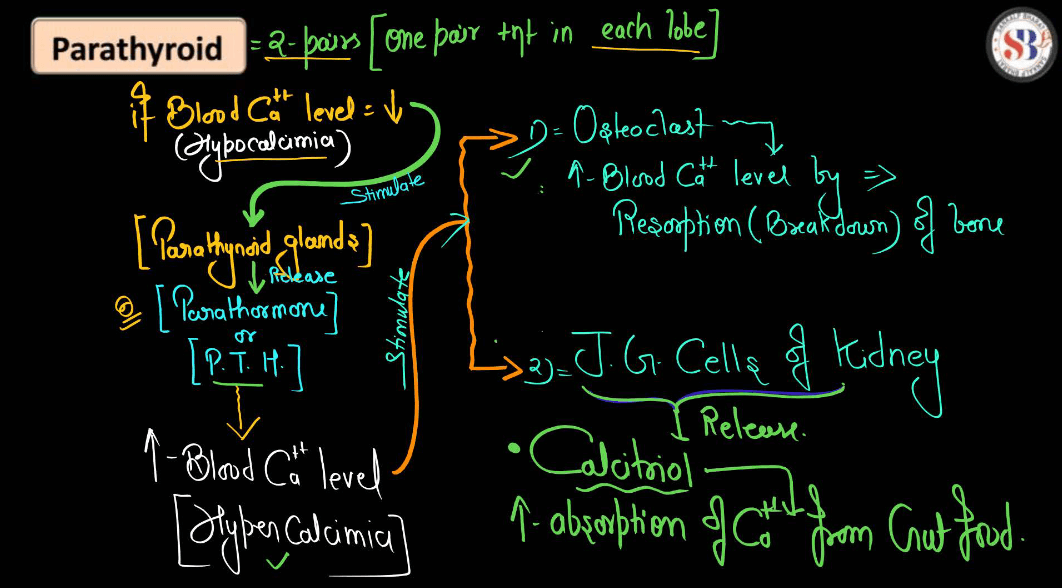 Parathyroid = 2-pairs [one pair +nt in each lobe]
if Blood Ca++ level = ↓
(Hypocalcimia)
Stimulate
[Parathyroid glands]
↓ Release
Q [Parathormone]
or
[P.T.H.]
↑-Blood Ca++ level
[HyperCalcimia]
Stimulate
1) = Osteoclast
↑-Blood Ca++ level by ⇒
Resorption (Breakdown) of bone
2) = J.G. Cells of Kidney
Release.
• Calcitriol
↑-absorption of Ca++ from Gut food.
SB